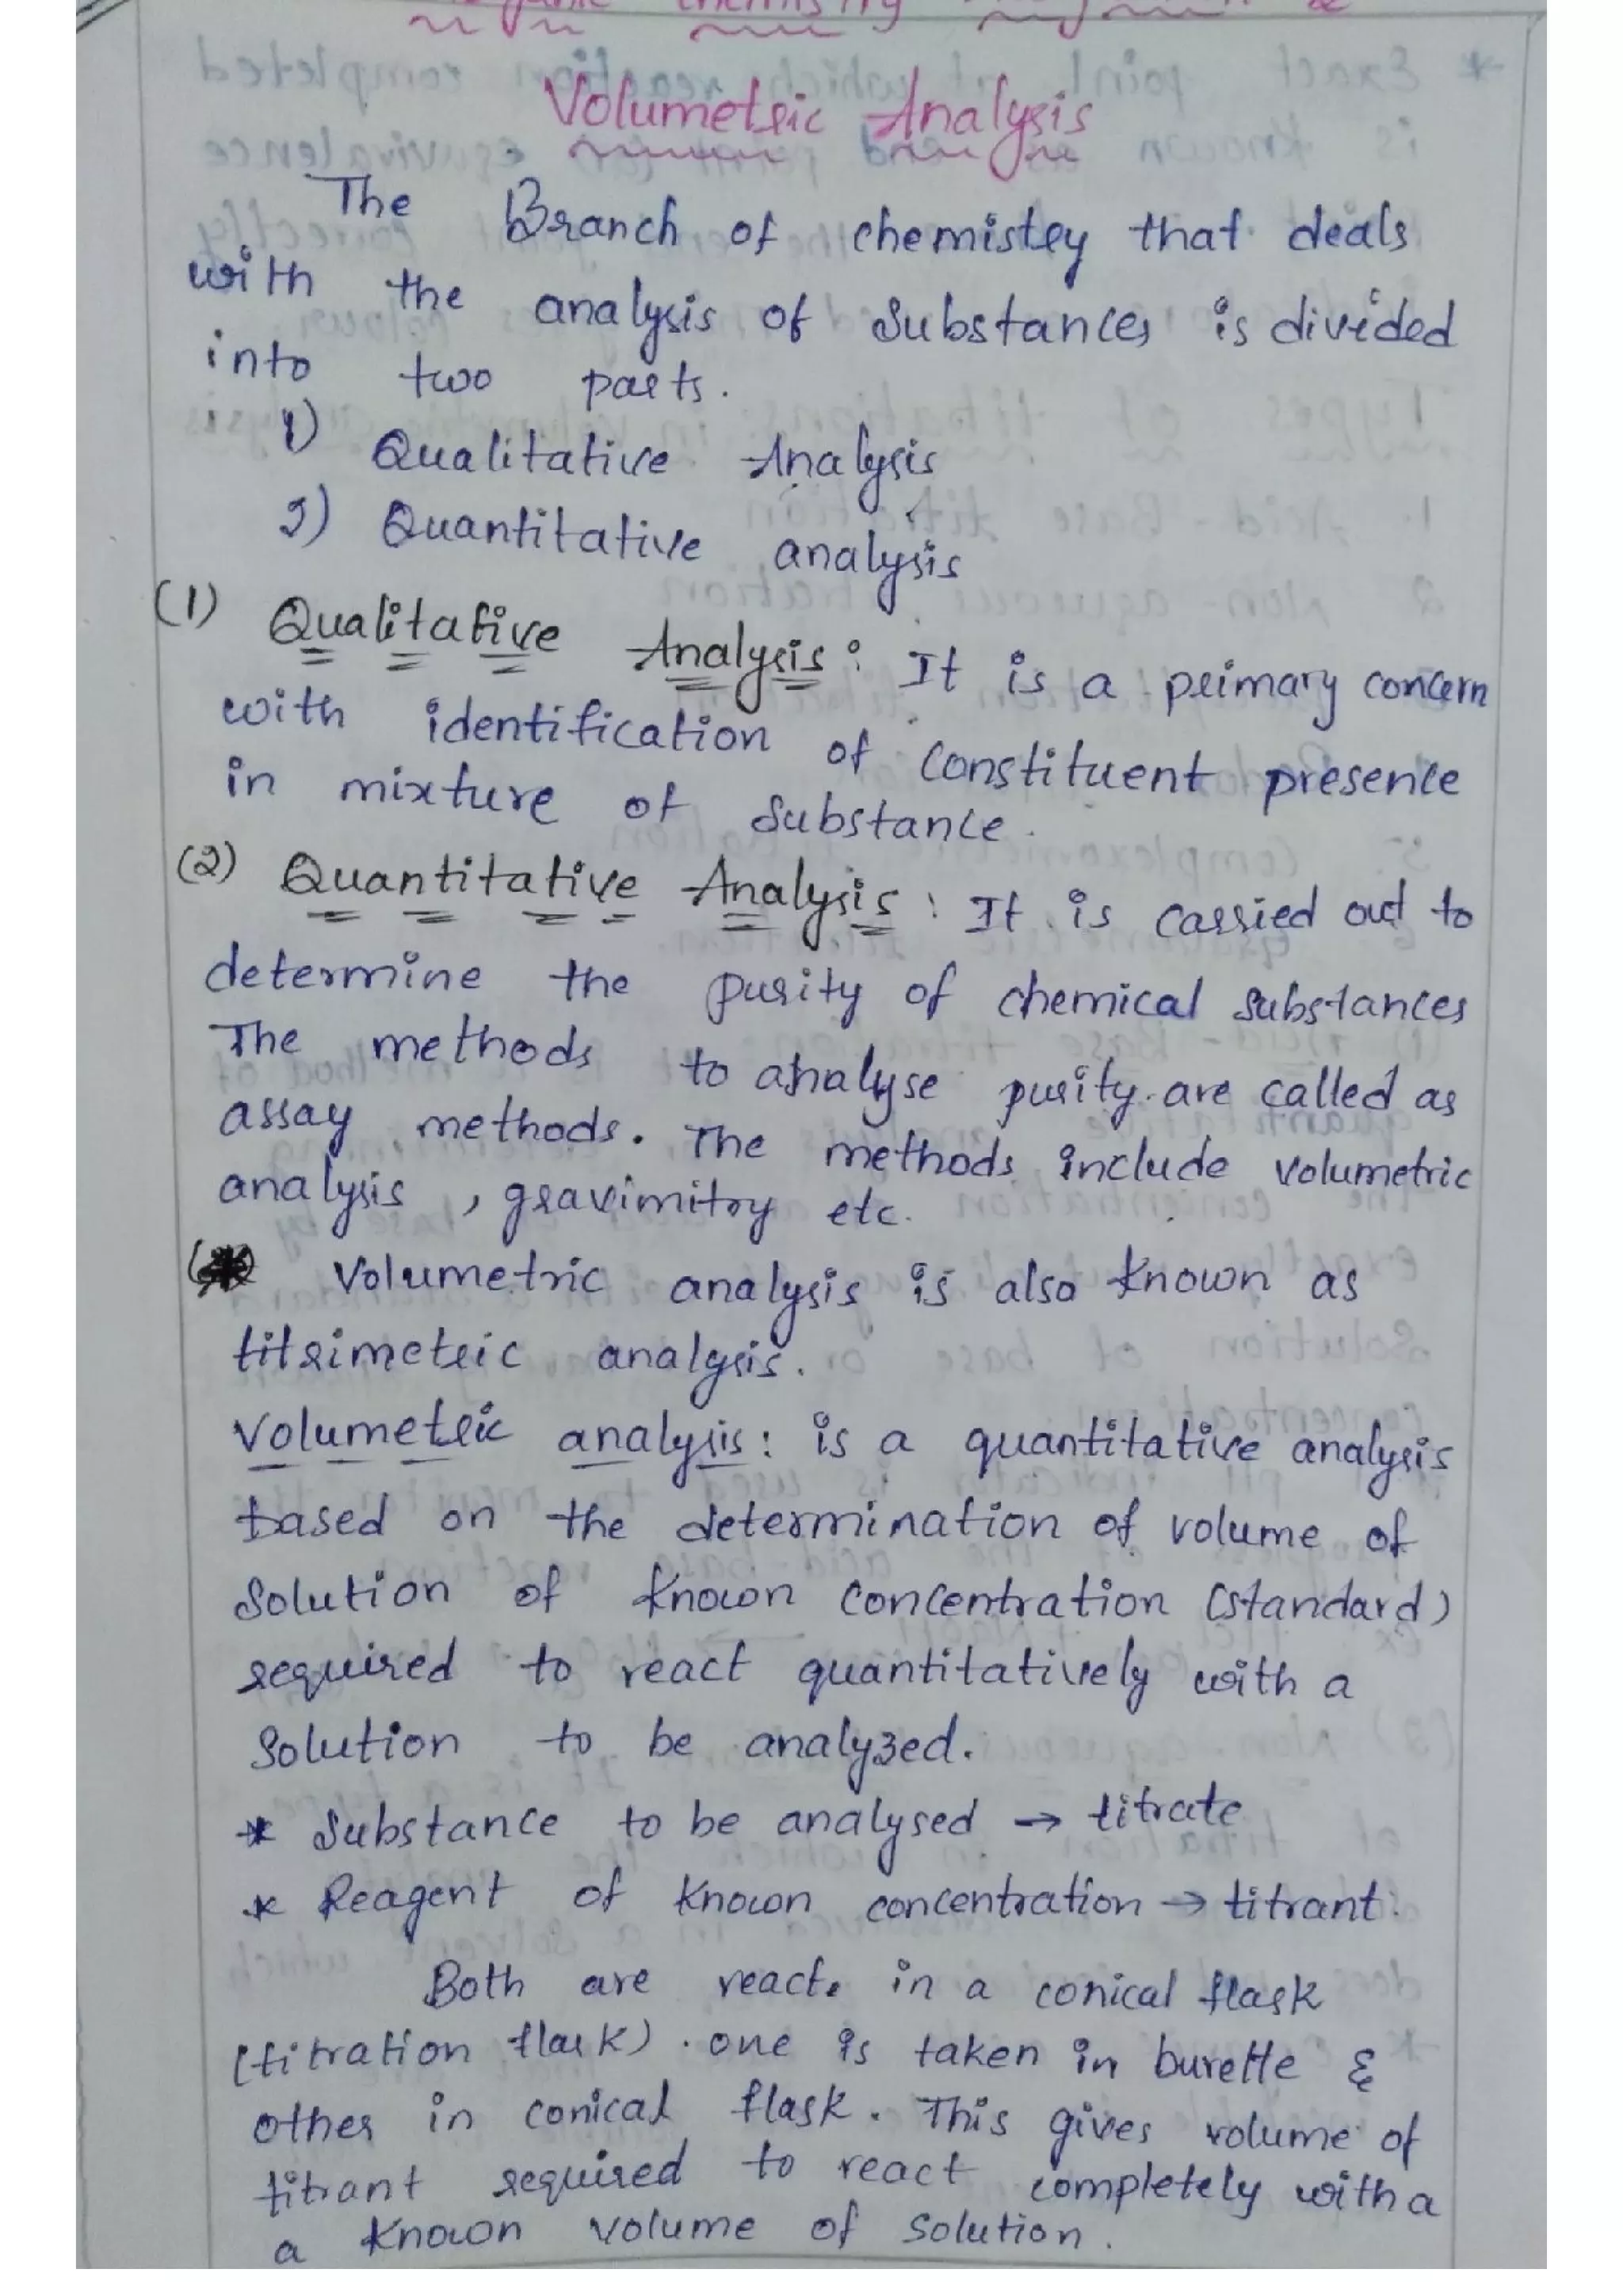 Chemistry
Volumetric Analysis
The Branch of chemistry that deals
with the analysis of substances is divided
into two parts.
1) Qualitative Analysis
2) Quantitative analysis
(1) Qualitative Analysis: It is a primary concern
with identification of constituent presence
in mixture of substance.
(2) Quantitative Analysis: It is carried out to
determine the purity of chemical substances
The methods to analyse purity are called as
assay methods. The methods include volumetric
analysis, gravimitry etc.
* Volumetric analysis is also known as
titrimetric analysis.
Volumetric analysis: is a quantitative analysis
based on the determination of volume of
solution of known concentration (standard)
required to react quantitatively with a
solution to be analyzed.
* Substance to be analysed → titrate
* Reagent of known concentration → titrant.
Both are react. in a conical flask
(titration flask). one is taken in burette &
other in conical flask. This gives volume of
titrant required to react completely with a
a known volume of solution.